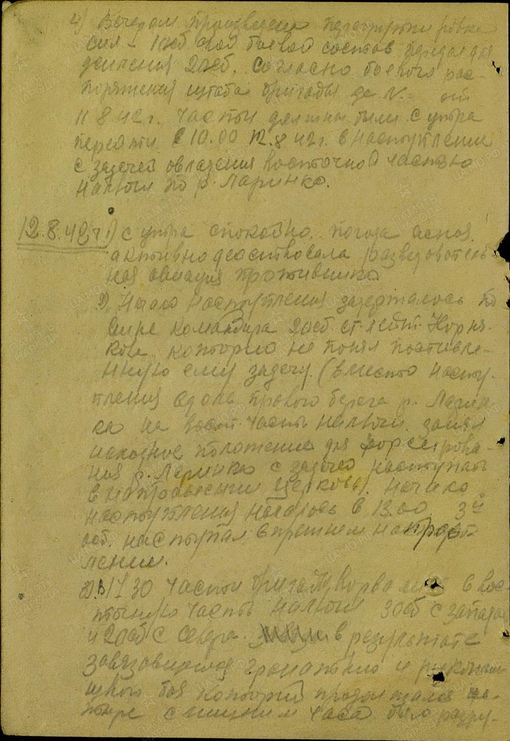 4) Вечером произведена перегруппировка
сил – 1 осб свой боевой состав передал для
усиления 2 осб. Согласно боевого рас-
поряжения штаба бригады за № от
11.8.42 г. части должны были с утра
перейти с 10.00 12.8.42 г. в наступление
с задачей овладения восточной частью
по р. Ларинка.
12.8.42 г. 1) С утра спокойно. погода ясная,
активно действовала разведователь-
ная авиация противника
2) Начало наступления задержалось по
вине командира 2 осб ст. лейт.
который не понял поставле-
нную ему задачу (вместо насту-
пления вдоль правого берега р.
на вост. часть занял
исходное положение для форсирова-
ния р. Ларинка с задачей наступать
в направлении церковь). начало
наступления началось в 13.00 3й
осб. наступал в прежнем направ-
лении.
3) В 17 30 части бригады ворвались в вос-
точную часть 3 осб с запада
и 2 осб с севера. в результате
завязавшегося гранатного и рукопаш-
ного боя который продолжался
с лишним часа было разру-